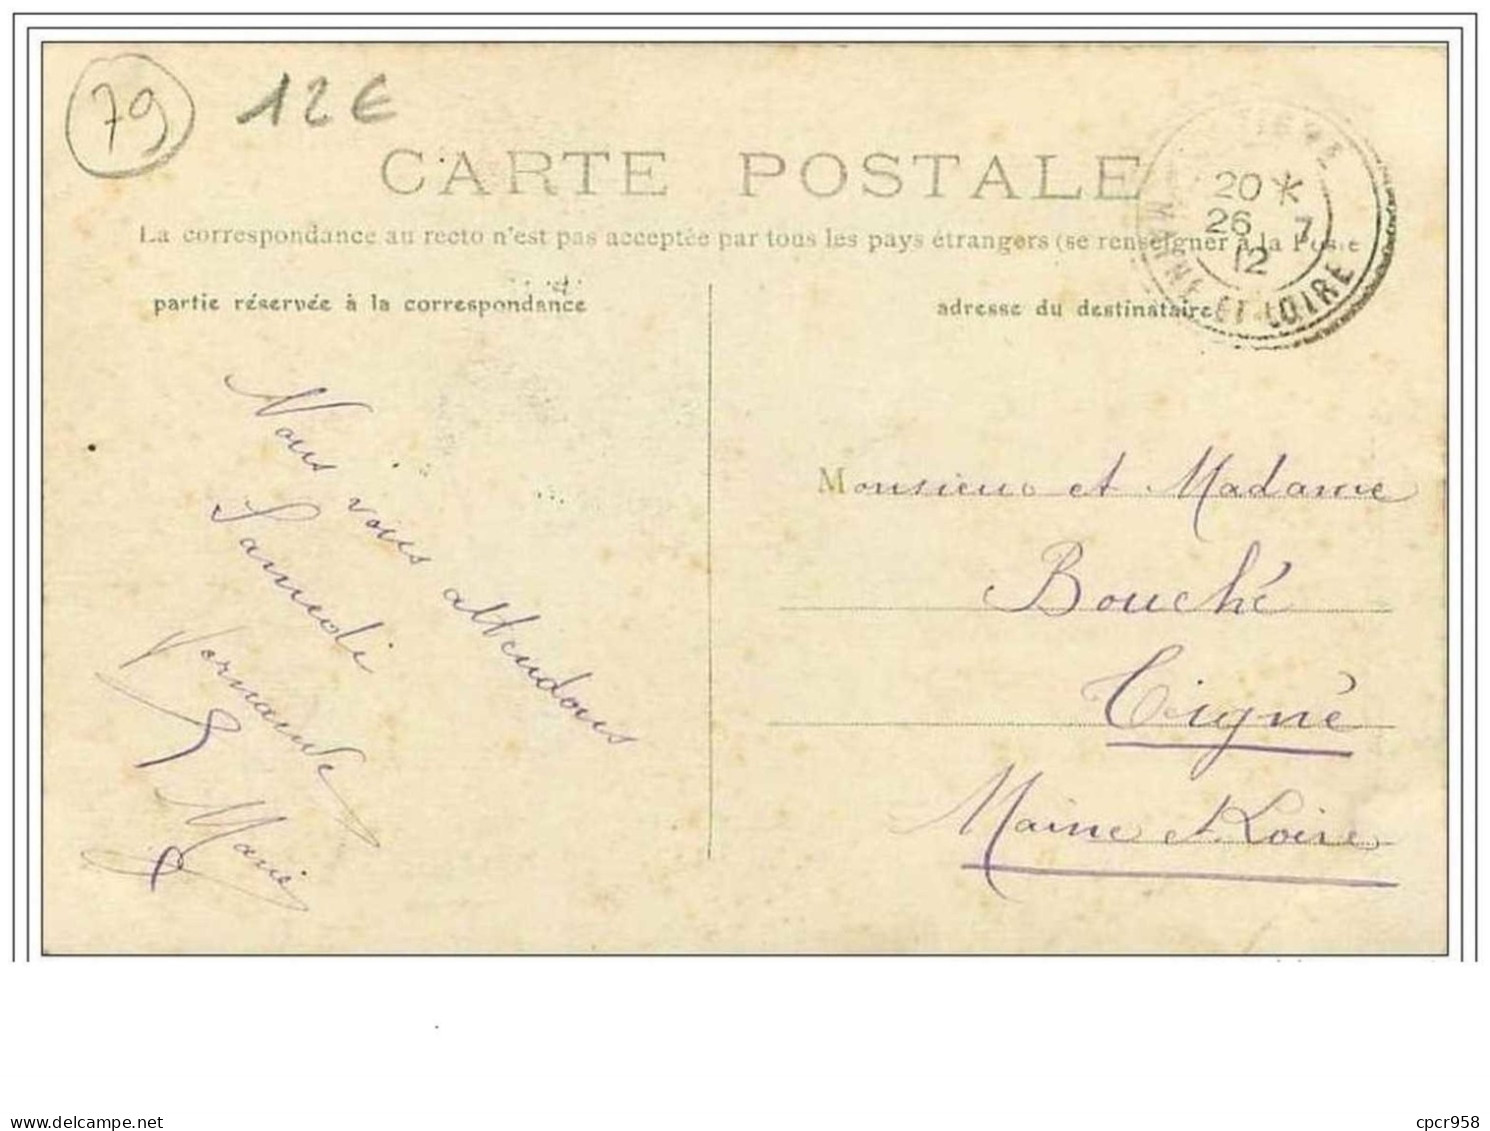 79 12€
CARTE POSTALE
La correspondance au recto n'est pas acceptée par tous les pays étrangers (se renseigner à la Poste
TIGNÉ
20*
26 7
12
MAINE ET LOIRE
partie réservée à la correspondance
adresse du destinataire
Nous vous attendons
Samedi
Fernande
Marie
Monsieur et Madame
Bouché
Tigné
Maine et Loire
delcampe.net
cpcr958